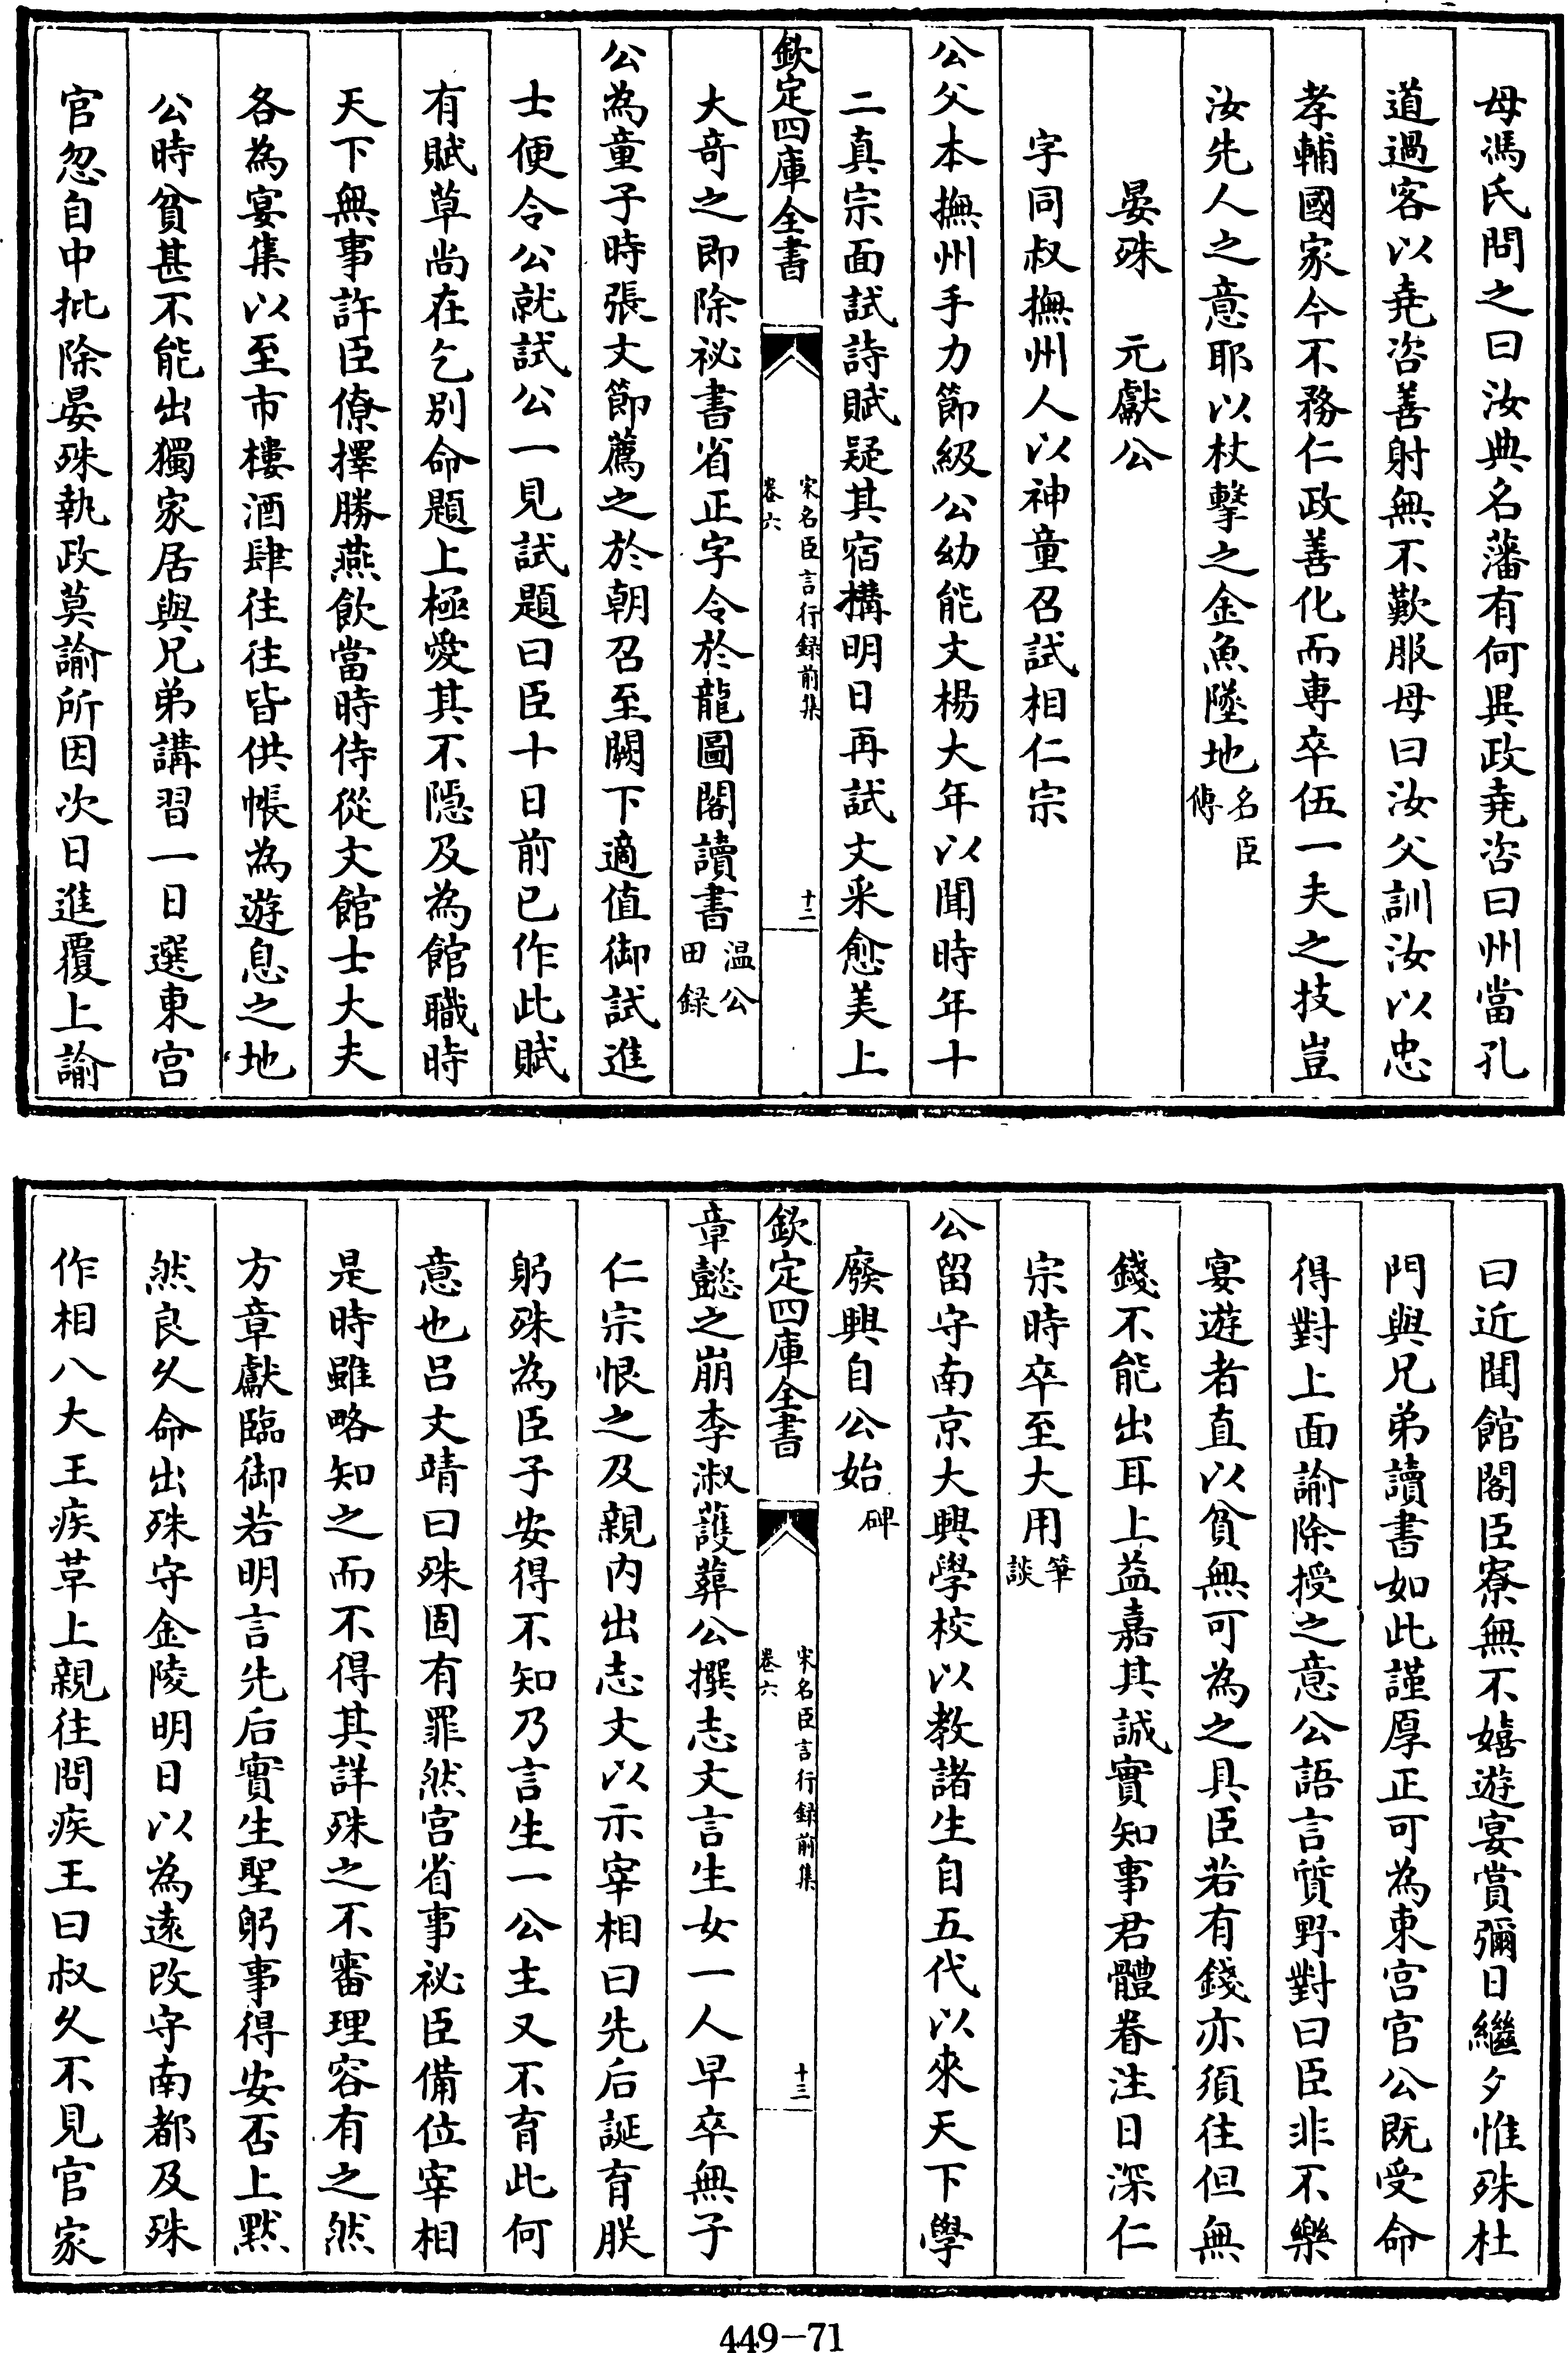 母馮氏問之曰汝典名藩有何異政堯咨曰州當孔
道過客以堯咨善射無不歎服母曰汝父訓汝以忠
孝輔國家今不務仁政善化而専卒伍一夫之技豈
汝先人之意耶以杖擊之金魚墜地名臣傳
晏殊　元獻公
字同叔撫州人以神童召試相仁宗
公父本撫州手力節級公幼能文楊大年以聞時年十
二真宗面試詩賦疑其宿構明日再試文采愈美上
欽定四庫全書　宋名臣言行録前集卷六　十二
大奇之即除祕書省正字令於龍圖閣讀書温公田録
公為童子時張文節薦之於朝召至闕下適值御試進
士便令公就試公一見試題曰臣十日前已作此賦
有賦草尚在乞別命題上極愛其不隠及為館職時
天下無事許臣僚擇勝燕飲當時侍從文館士大夫
各為宴集以至市樓酒肆往往皆供帳為遊息之地
公時貧甚不能出獨家居與兄弟講習一日選東宮
官忽自中批除晏殊執政莫諭所因次日進覆上諭
曰近聞館閣臣寮無不嬉遊宴賞彌日繼夕惟殊杜
門與兄弟讀書如此謹厚正可為東宮官公既受命
得對上面諭除授之意公語言質野對曰臣非不樂
宴遊者直以貧無可為之具臣若有錢亦須往但無
錢不能出耳上益嘉其誠實知事君體眷注日深仁
宗時卒至大用筆談
公留守南京大興學校以教諸生自五代以來天下學
廢興自公始碑
欽定四庫全書　宋名臣言行録前集卷六　十三
章懿之崩李淑護葬公撰志文言生女一人早卒無子
仁宗恨之及親内出志文以示宰相曰先后誕育朕
躬殊為臣子安得不知乃言生一公主又不育此何
意也吕文靖曰殊固有罪然宮省事祕臣備位宰相
是時雖略知之而不得其詳殊之不審理容有之然
方章獻臨御若明言先后實生聖躬事得安否上黙
然良久命出殊守金陵明日以為遠改守南都及殊
作相八大王疾革上親往問疾王曰叔久不見官家
449-71